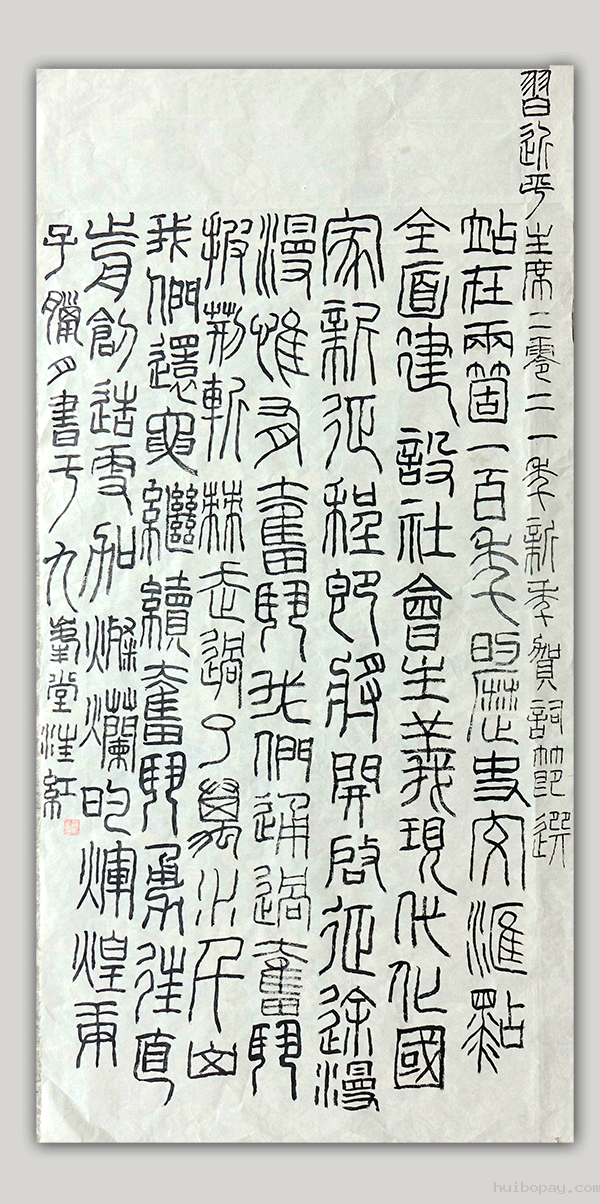 習近平主席二零二一年新年賀詞節選
站在兩箇一百年的歷史交匯點
全面建設社會主義現代化國
家新征程即將開啟征途漫
漫惟有奮鬥我們通過奮鬥
披荊斬棘走過了萬水千山
我們還要繼續奮鬥勇往直
前創造更加燦爛的輝煌庚
子臘月書于九峯堂汪紅
huibopay.com